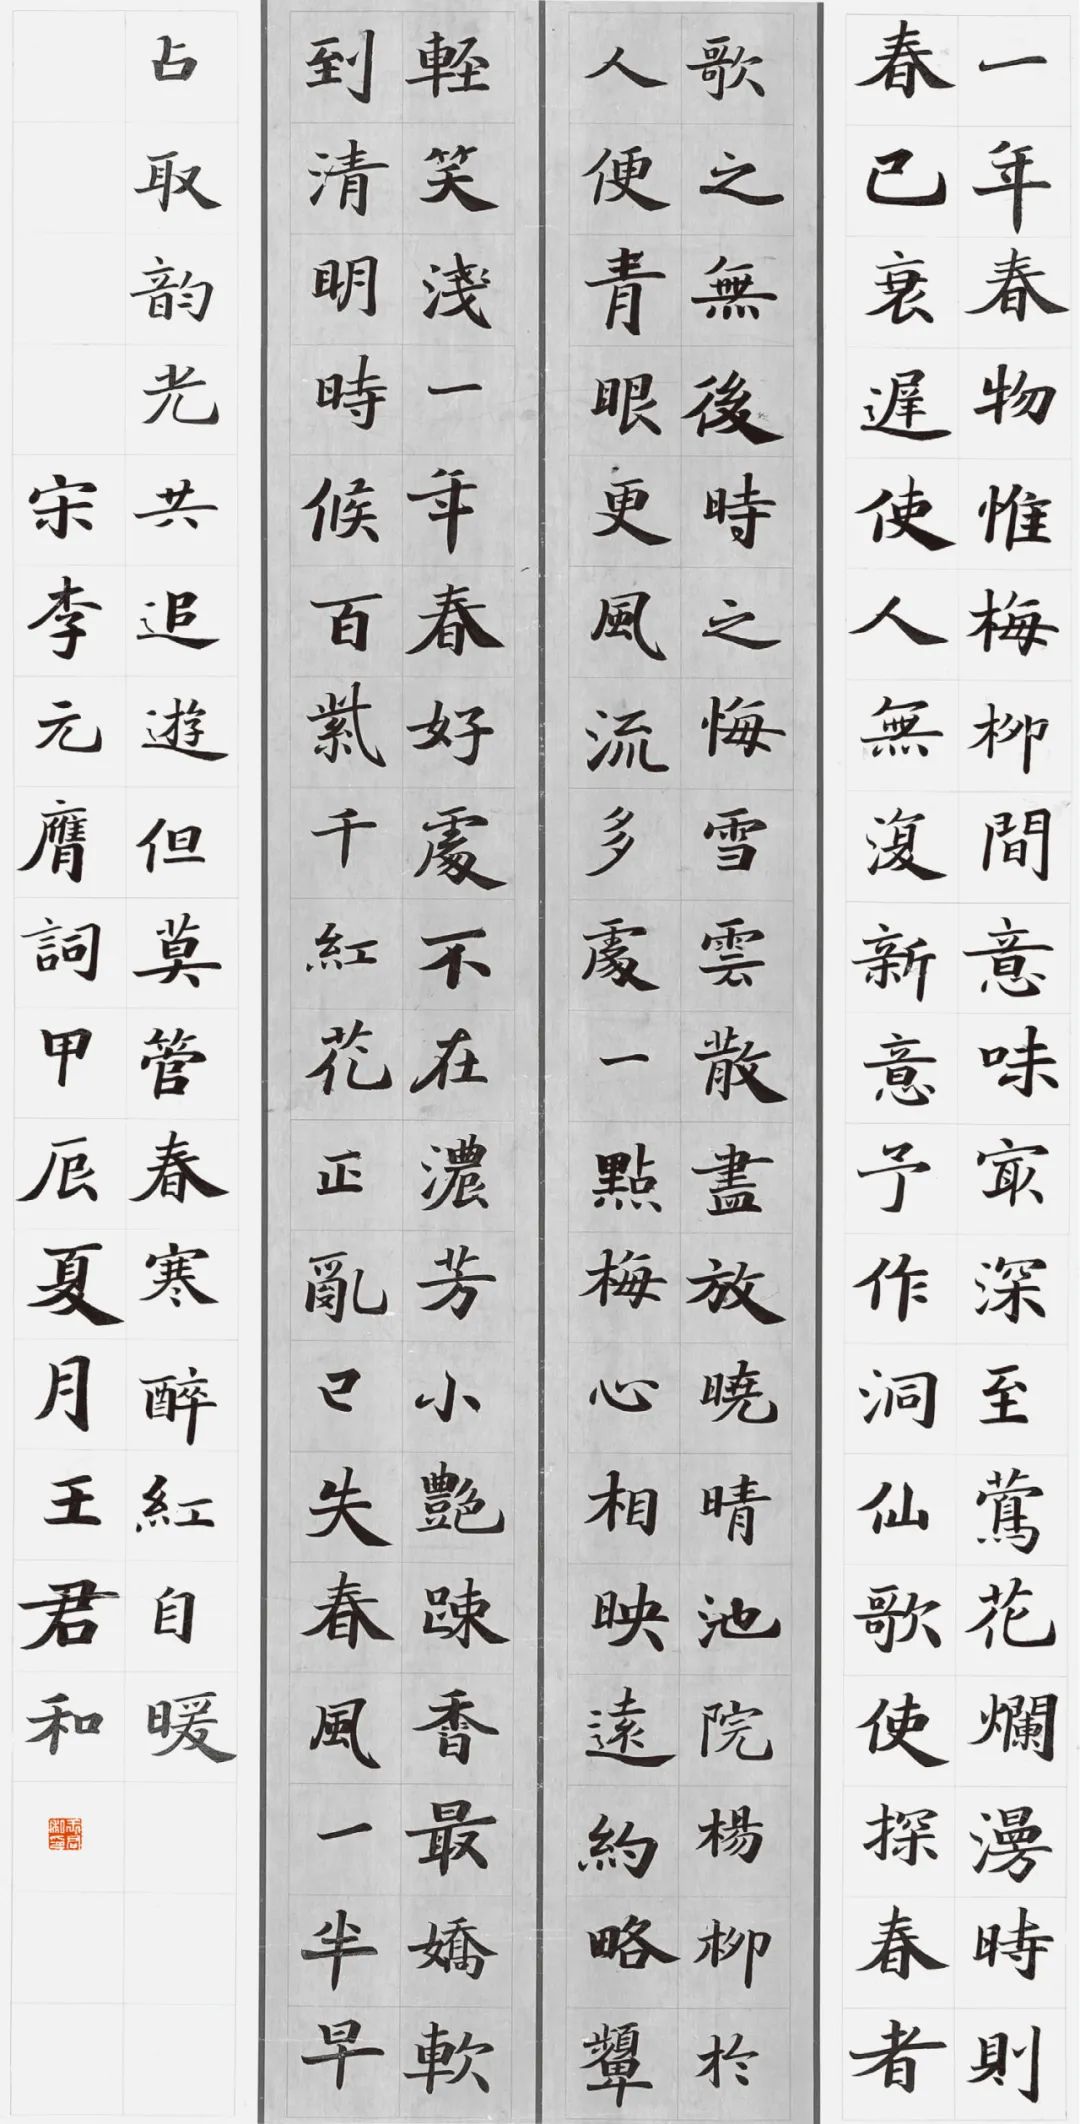 一年春物惟梅柳間意味冣深至鶯花爛漫時則
春已衰遲使人無復新意予作洞仙歌使探春者
歌之無後時之悔雪雲散盡放曉晴池院楊柳於
人便青眼更風流多處一點梅心相映遠約略顰
輕笑淺一年春好處不在濃芳小艷疎香最嬌軟
到清明時候百紫千紅花正亂已失春風一半早
占取韵光共追遊但莫管春寒醉紅自暖
宋李元膺詞甲辰夏月王君和